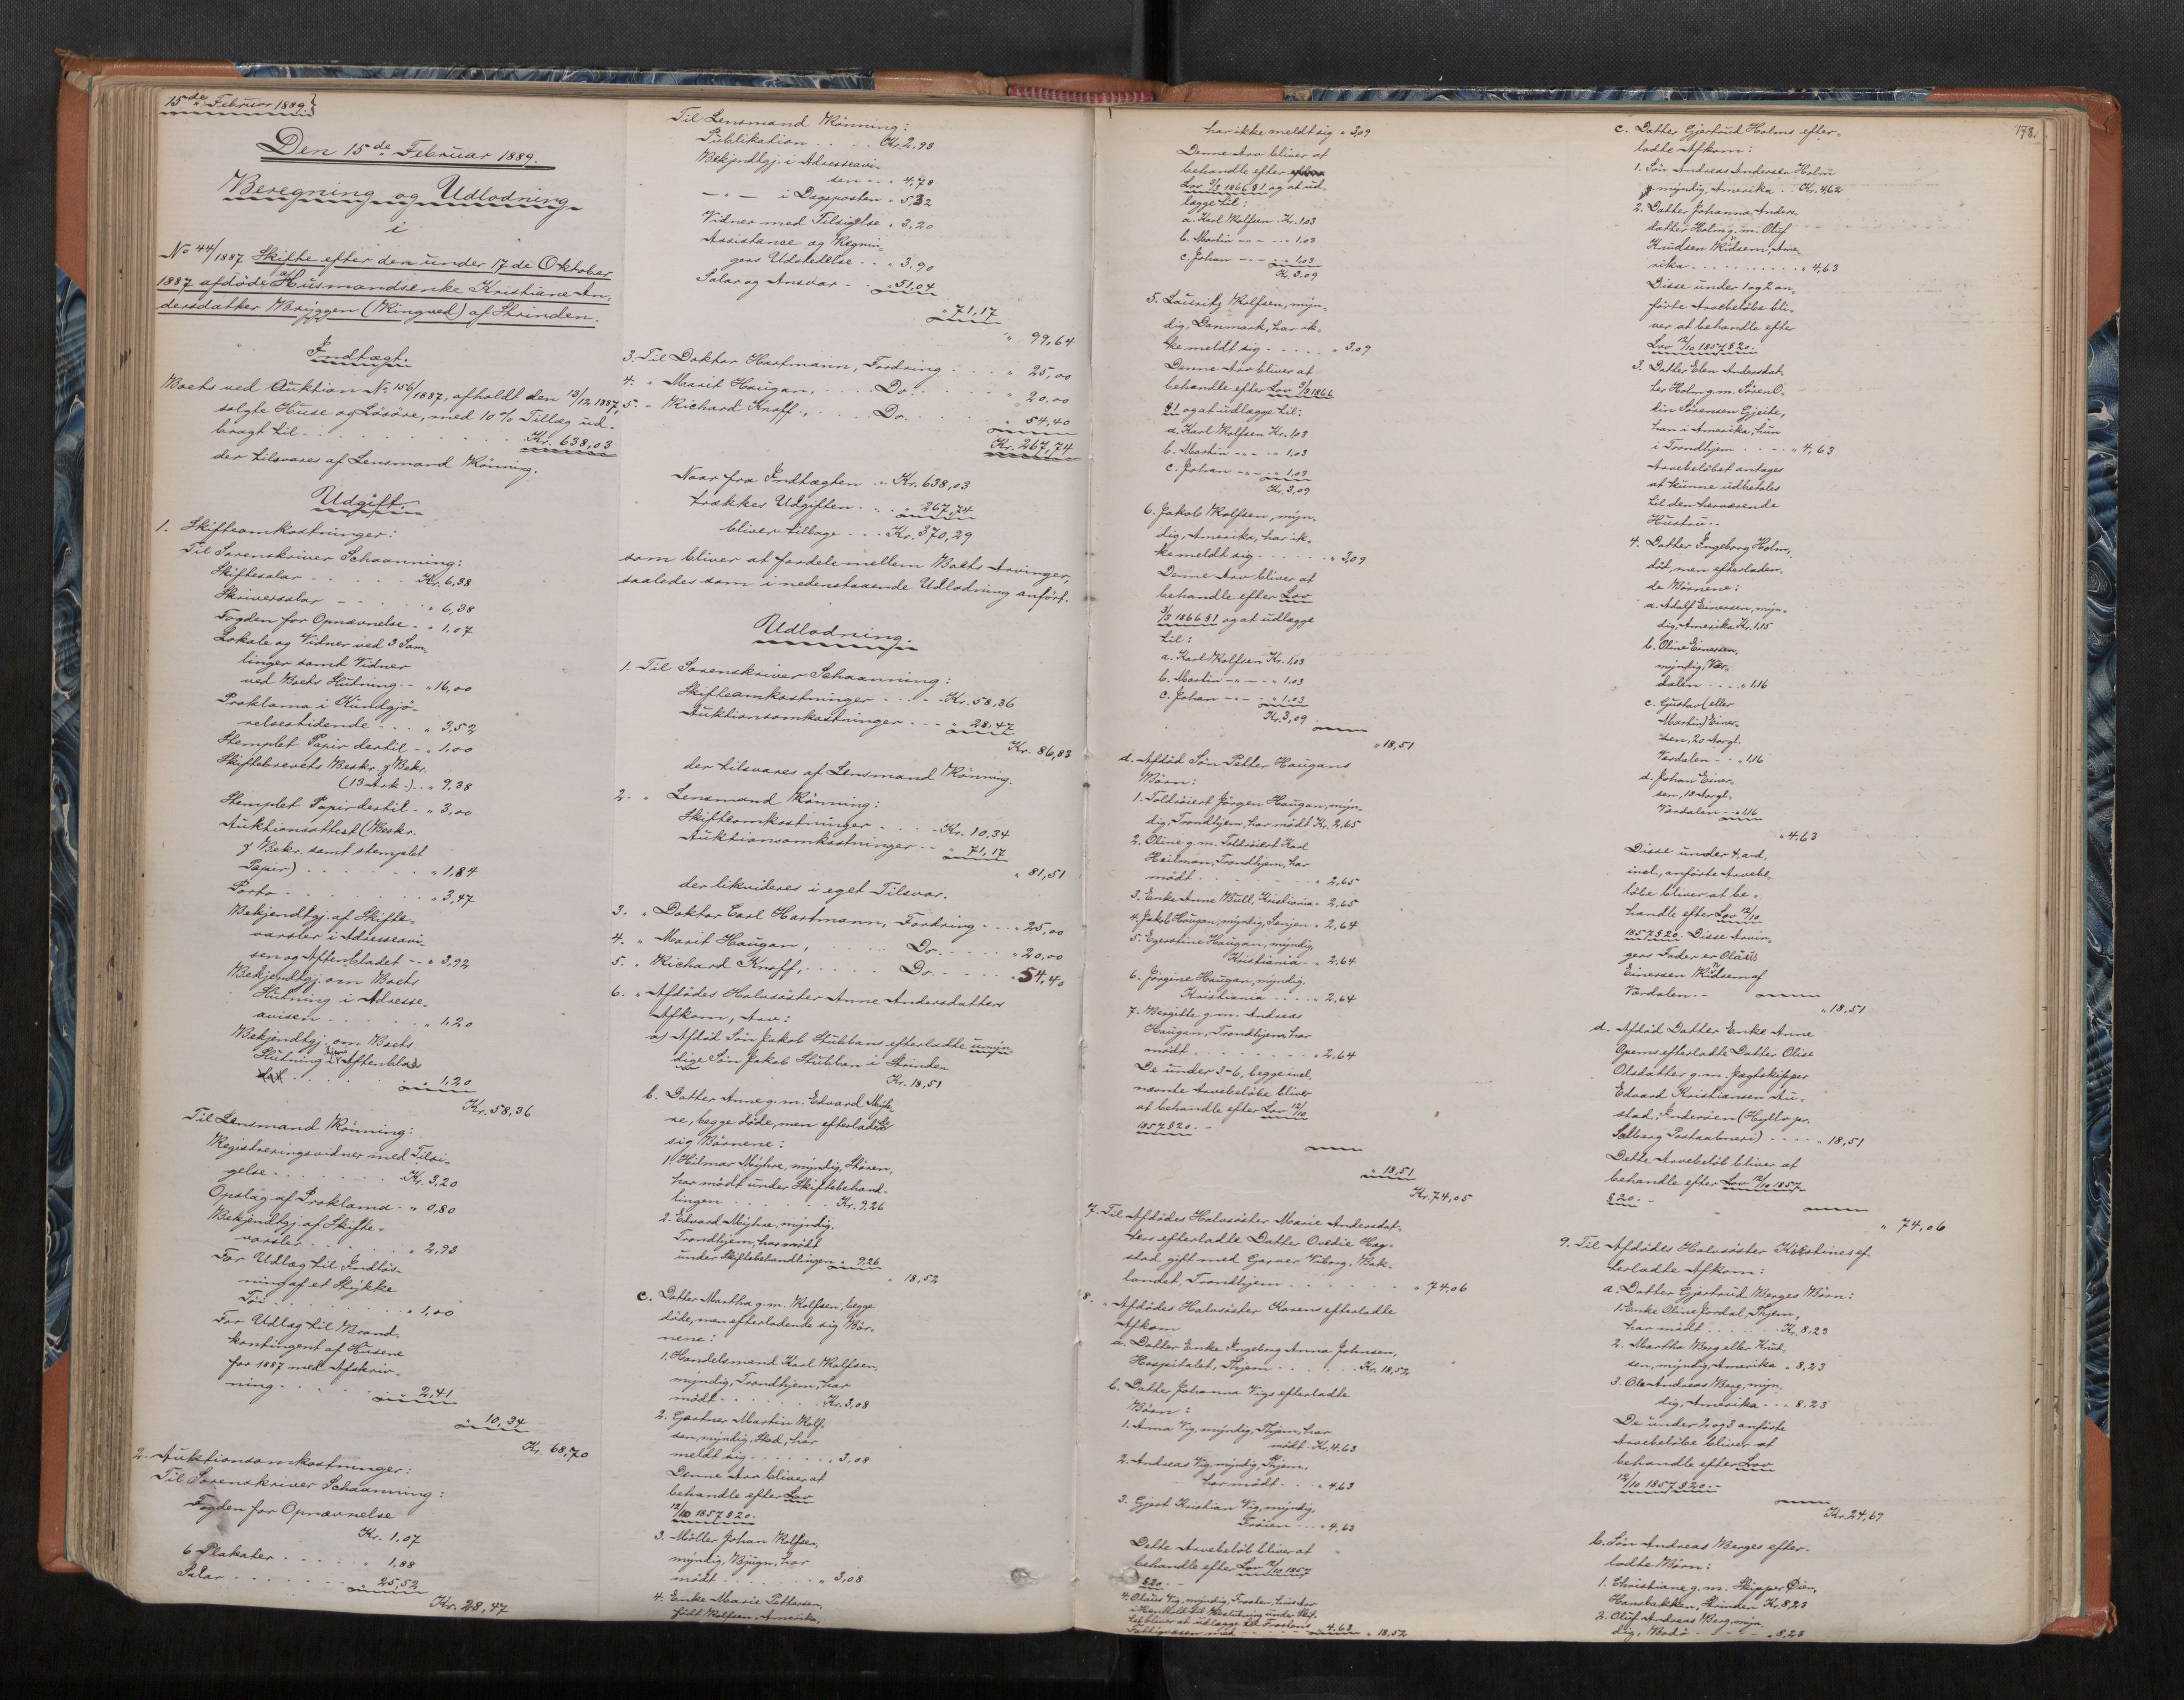 15de Februar 1889.
Den 15de Februar 1889.
Beregning og Udlodning
i
No 44/1887 Skifte efter den under 17de Oktober
1887 afdöde Husmandsenke Kristiane An-
dersdatter Bryggen (Ringved) af Strinden.
Indtægt.
Boets ved Auktion No 156/1887, afholdt den 13/12 1887,
solgte Huse og Lösöre, med 10 % Tillæg ud-
bragt til - . . . . . . . . Kr. 638,03
der tilsvares af Lensmand Rönning.
Udgift.
1. Skifteomkostninger:
Til Sorenskriver Schaanning:
Skiftesalar - - . . . Kr. 6,38
Skriversalar - - . . . " 6,38
Fogden for Opnævnelse - " 1,07
Lokale og Vidner ved 3 Sam-
linger samt Vidner
ved Boets Slutning - - " 16,00
Proklama i Kundgjö-
relsestidende . . . " 3,52
Stemplet Papir dertil - " 1,00
Skiftebrevets Beskr. & Bekr.
(13 Ark -) . . " 9,38
Stemplet Papir dertil - " 3,00
Auktionsattest (Beskr.
& Bekr. samt stemplet
Papir) . . . . . . " 1,84
Porto . . . . . . . " 3,47
Bekjendtgj. af Skifte-
varsler i Adresseavi-
sen og Aftenbladet - - " 3,92
Bekjendtgj. om Boets
Slutning i Adresse-
avisen . . . . . . " 1,20
Bekjendtgj. om Boets
Slutning i Aftenblad
. . . . . . " 1,20
Kr. 58,36
Til Lensmand Rönning:
Registreringsvidner med Tilsi-
gelse . . . . . . . Kr. 3,20
Opslag af Proklama - " 0,80
Bekjendtgj. af Skifte-
varsler . . . . . " 2,93
For Udlæg til Indlös-
ning af et Stykke
Töi . . . . . . . " 1,00
For Udlæg til Brand-
kontingent af Husene
for 1887 med Afskriv-
ning . . . . . " 2,41
" 10,34
Kr. 68,70
2. Auktionsomkostninger:
Til Sorenskriver Schaanning:
Fogden for Opnævnelse
Kr. 1,07
6 Plakater . . . . . " 1,88
Salar . . . . . . . " 25,52
Kr. 28,47
Til Lensmand Rönning:
Publikation . . . . Kr. 2,93
Bekjendtgj. i Adresseavi-
sen - . . " 4,78
— " — i Dagsposten " 5,32
Vidner med Tilsigelse " 3,20
Assistance og Regnin-
gers Udstedelse . . " 3,90
Salar og Ansvar - . . " 51,04
" 71,17
" 99,64
3. Til Doktor Hartmann, Fordring . . . " 25,00
4. " Marit Haugan, . . . Do. . . . . . " 20,00
5. " Richard Knoff, . . . Do. . . . . . " 54,40
Kr. 267,74
Naar fra Indtægten . . Kr. 638,03
trækkes Udgiften . . . " 267,74
bliver tilbage . . . Kr. 370,29
som bliver at fordele mellem Boets Arvinger,
saaledes som i nedenstaaende Udlodning anfört.
Udlodning.
1. Til Sorenskriver Schaanning:
Skifteomkostninger . . . . Kr. 58,36
Auktionsomkostninger . . . " 28,47
Kr. 86,83
der tilsvares af Lensmand Rönning.
2. " Lensmand Rönning:
Skifteomkostninger . . . . Kr. 10,34
Auktionsomkostninger . . . " 71,17
" 81,51
der likvideres i eget Tilsvar.
3. " Doktor Carl Hartmann, Fordring . . . " 25,00
4. " Marit Haugan, . . . . Do. . . . . " 20,00
5. " Richard Knoff, . . . . Do. . . . . " 54,40
6. " Afdödes Halvsöster Anne Andersdatters
Afkom, Arv:
a) Afdöd Sön Jakob Stubbans efterladte umyn-
dige Sön Jakob Stubban i Strinden
Kr. 18,51
b. Datter Anne g. m. Edvard Myh-
re, begge döde, men efterladt
sig Börnene:
1. Hilmar Myhre, myndig, Stören,
har mödt under Skiftebehand-
lingen . . . . . . Kr. 9,26
2. Edvard Myhre, myndig,
Trondhjem, har mödt
under Skiftebehandlingen " 9,26
" 18,52
c. Datter Martha g. m. Rolfsen, begge
döde, men efterladende sig Bör-
nene:
1. Handelsmand Karl Rolfsen,
myndig, Trondhjem, har
mödt . . . . . . . Kr. 3,08
2. Gartner Martin Rolf-
sen, myndig, Stod, har
meldt sig . . . . . . " 3,08
Denne Arv bliver at
behandle efter Lov
12/10 1857 § 20.
3. Möller Johan Rolfsen,
myndig, Bjugn, har
mödt . . . . . . . " 3,08
4. Enke Marie Pettersen,
født Rolfsen, Amerika,
178.
har ikke meldt sig " 3,09
Denne Arv bliver at
behandle efter
Lov 9/3 1866 § 1 og at ud-
lægge til:
a. Karl Rolfsen . Kr. 1.03
b. Martin - " - . . " 1,03
c. Johan - " - . . " 1,03
Kr. 3,09
5. Lauritz Rolfsen, myn-
dig, Danmark, har ik-
ke meldt sig . . . . . " 3,09
Denne Arv bliver at
behandle efter Lov 9/3 1866
§ 1 og at udlægge til:
a. Karl Rolfsen Kr. 1,03
b. Martin - " - . " 1,03
c. Johan - " - . " 1,03
Kr. 3,09
6. Jakob Rolfsen, myn-
dig, Amerika, har ik-
ke meldt sig . . . . . " 3,09
Denne Arv bliver at
behandle efter Lov
9/3 1866 § 1 og at udlægge
til:
a. Karl Rolfsen Kr. 1,03
b. Martin - " - . " 1,03
c. Johan - " - . " 1,03
Kr. 3,09
" 18,51
d. Afdöd Sön Petter Haugans
Börn:
1. Toldroiert Jörgen Haugan, myn-
dig, Trondhjem, har mödt Kr. 2,65
2. Oline g. m. Toldroiert Karl
Heilman, Trondhjem, har
mödt . . . . . . . " 2,65
3. Enke Anne Bull, Kristiania " 2,65
4. Jakob Haugan, myndig, Senjen " 2,64
5. Haugan, myndig,
Kristiania . . " 2,64
6. Jörgine Haugan, myndig,
Kristiania . . . . " 2,64
7. Bergitte g. m. Andreas
Haugan, Trondhjem, har
mödt . . . . . . . " 2,64
De under 3-6, begge incl,
nævnte Arvebelöbe bliver
at behandle efter Lov 12/10
1857 § 20. -
" 18,51
Kr. 74,05
7. Til Afdödes Halvsöster Marie Andersdat-
ters efterladte Datter Ovedie Hag-
stad gift med Garver Viborg, Bak-
landet, Trondhjem . . . . . . . " 74,06
8. " Afdödes Halvsöster Karens efterladte
Afkom
a. Datter Enke Ingeborg Anna Johnsen,
Hospitalet, Thjem . . . . . Kr. 18,52
b. Datter Johanna Vigs efterladte
Börn:
1. Anna Vig, myndig, Thjem, har
mödt - Kr. 4,63
2. Andreas Vig, myndig, Thjem,
har mödt . . . " 4,63
3. Gjert Kristian Vig, myndig,
Fröien . . . . " 4,63
Dette Arvebelöb bliver at
behandle efter Lov 12/10 1857
§ 20. -
4. Olaus Vig, myndig, Frosten, hvis Arv
i Henhold til Beslutning under Skif-
tet bliver at udlægge til Frostens
Fattigvæsen med . . . . . " 4.63 " 18,52
c. Datter Gjertrud Holms efter-
ladte Afkom:
1. Sön Andreas Andersen Holm
myndig, Amerika . . Kr. 4,62
2. Datter Johanna Anders-
datter Holm g. m. Oluf
Knudsen Midsem, Ame-
rika . . . . . . . . . " 4,63
Disse under 1 og 2 an-
förte Arvebelöbe bli-
ver at behandle efter
Lov 12/10 1857 § 20.
3. Datter Elen Andersdat-
ter Holm g. m. Sören O-
din Sörensen Gjeite,
han i Amerika, hun
i Trondhjem . . . . . " 4,63
Arvebelöbet antages
at kunne udbetales
til den herværende
Hustru. -
4. Datter Ingeborg Holm,
död, men efterladen-
de Börnene:
a. Adolf Einersen, myn-
dig, Amerika Kr. 1,15
b. Oline Einersen,
myndig, Vær-
dalen . . . . " 1,16
c. Gustav (eller
Martin) Einer-
sen, 20 Aargl.
Værdalen . . . " 1,16
d. Johan Einer-
sen, 18 Aargl.
Værdalen . . . " 1,16
" 4,63
Disse under 4, a-d,
incl, anförte Arvebe-
löbe bliver at be-
handle efter Lov 12/10
1857 § 20. Disse Arvin-
gers Fader er Olaus
Einersen Midsem af
Værdalen. -
" 18,51
d. Afdöd Datter Enke Anne
Opems efterladte Datter Olise
Olsdatter g. m. Jægtskipper
Edvard Kristiansen Au-
stad, Inderöen (Hyllo pr.
Salberg Postaabneri) . . . . . " 18,51
Dette Arvebelöb bliver at
behandle efter Lov 12/10 1857
§ 20. -
" 74,06
9. Til Afdödes Halvsöster Kirstines ef-
terladte Afkom:
a. Datter Gjertrud Berges Börn:
1. Enke Oline Jordal, Thjem,
har mödt . . . . . Kr. 8,23
2. Martha Berg eller Knut-
sen, myndig, Amerika " 8,23
3. Ole Andreas Berg, myn-
dig, Amerika . . . " 8,23
De under 2 og 3 anförte
Arvebelöbe bliver at
behandle efter Lov
12/10 1857 § 20. -
Kr. 24,69
b. Sön Andreas Berges efter-
ladte Börn:
1. Christiane g. m. Skipper Öien,
Hansbakken, Strinden Kr. 8,23
2. Oluf Andreas Berg, myn-
dig, Bodö - - - - - " 8,23